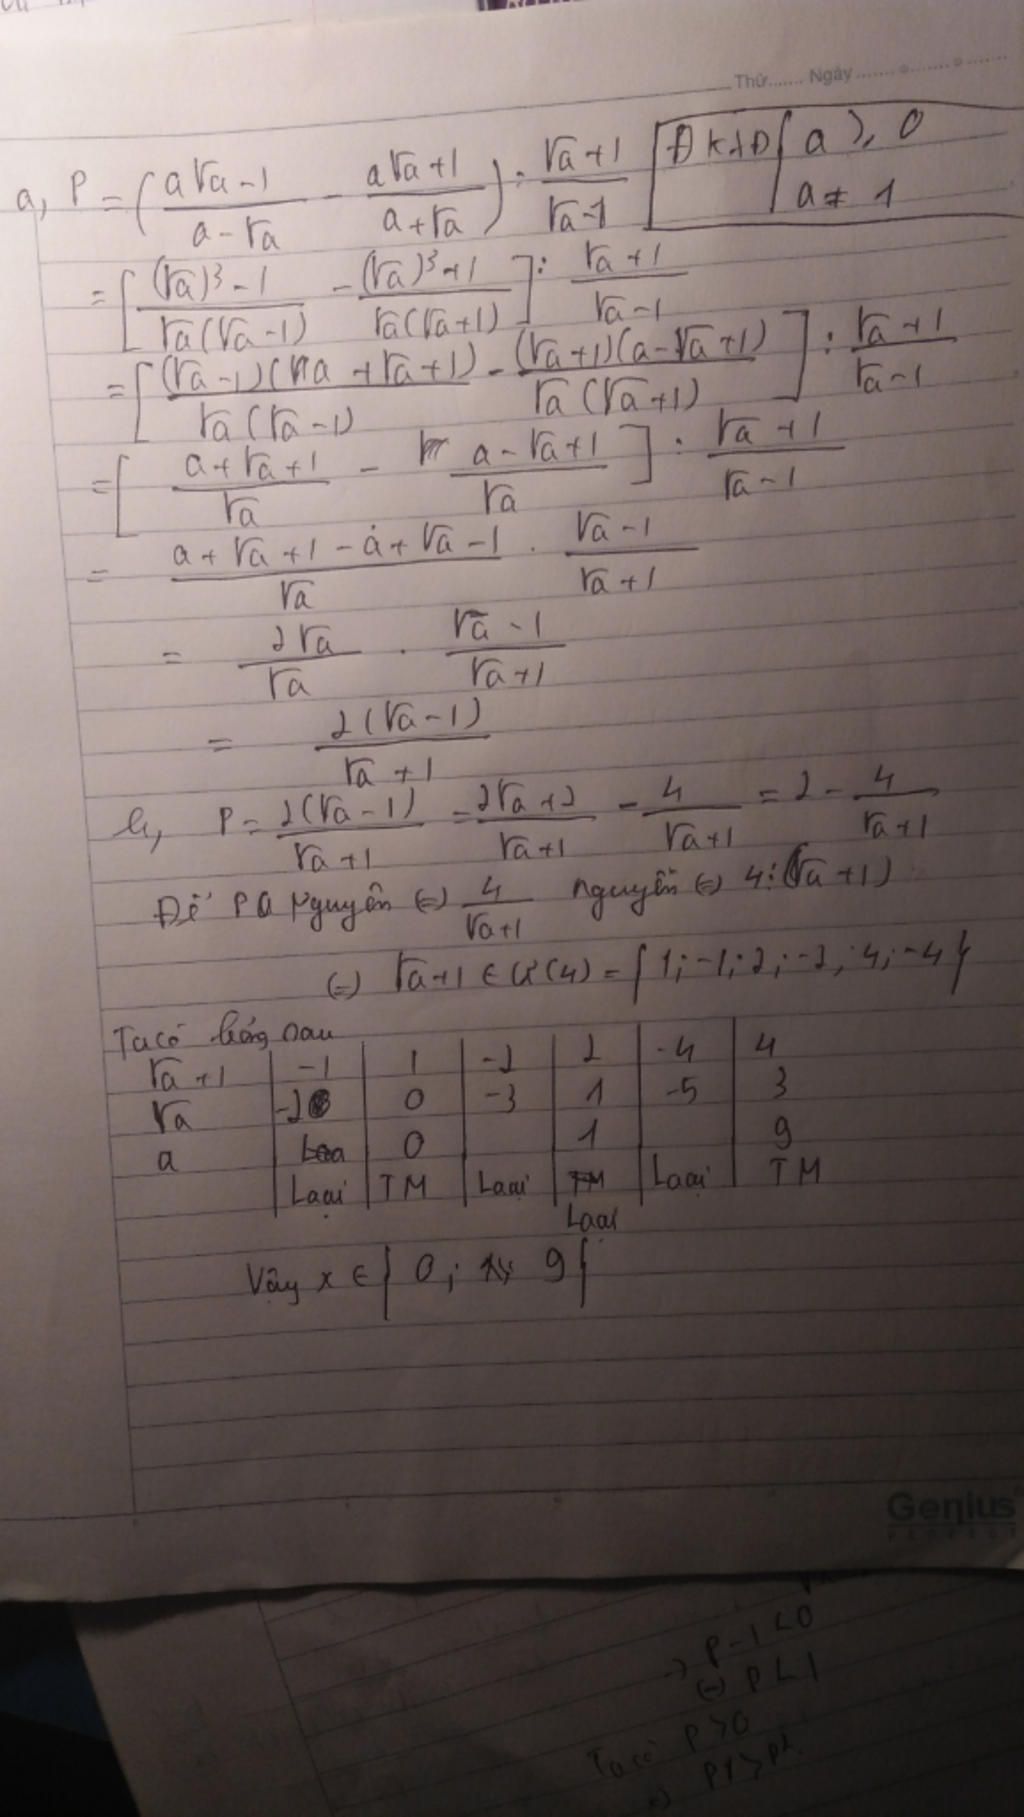 Thứ....... Ngày
a, P = (a√a-1 / a-√a - a√a+1 / a+√a) : √a+1 / √a-1 ĐKXĐ { a ≥ 0 a ≠ 1
= [(√a)³-1 / √a(√a-1) - (√a)³+1 / √a(√a+1)] : √a+1 / √a-1
= [(√a-1)(a+√a+1) / √a(√a-1) - (√a+1)(a-√a+1) / √a(√a+1)] : √a+1 / √a-1
= [a+√a+1 / √a - a-√a+1 / √a] : √a+1 / √a-1
= a+√a+1-a+√a-1 / √a . √a-1 / √a+1
= 2√a / √a . √a-1 / √a+1
= 2(√a-1) / √a+1
b, P = 2(√a-1) / √a+1 = 2√a+2 / √a+1 - 4 / √a+1 = 2 - 4 / √a+1
Để P Nguyên (=) 4 / √a+1 nguyên (=) 4 ⋮ (√a+1)
(=) √a+1 ∈ Ư(4) = { 1; -1; 2; -2; 4; -4 }
Ta có bảng sau
√a+1 | -1 | 1 | -2 | 2 | -4 | 4
√a | -2 | 0 | -3 | 1 | -5 | 3
a | | 0 | | 1 | | 9
Loại | TM | Loại | TM | Loại | TM
Loại
Vậy x ∈ { 0; 9 }
Genius
-) P-1<0
(=) P<1
Ta có P>0